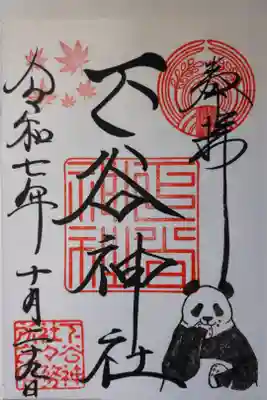 奉拝
下谷神社
令和七年十月二十九日
下谷神社